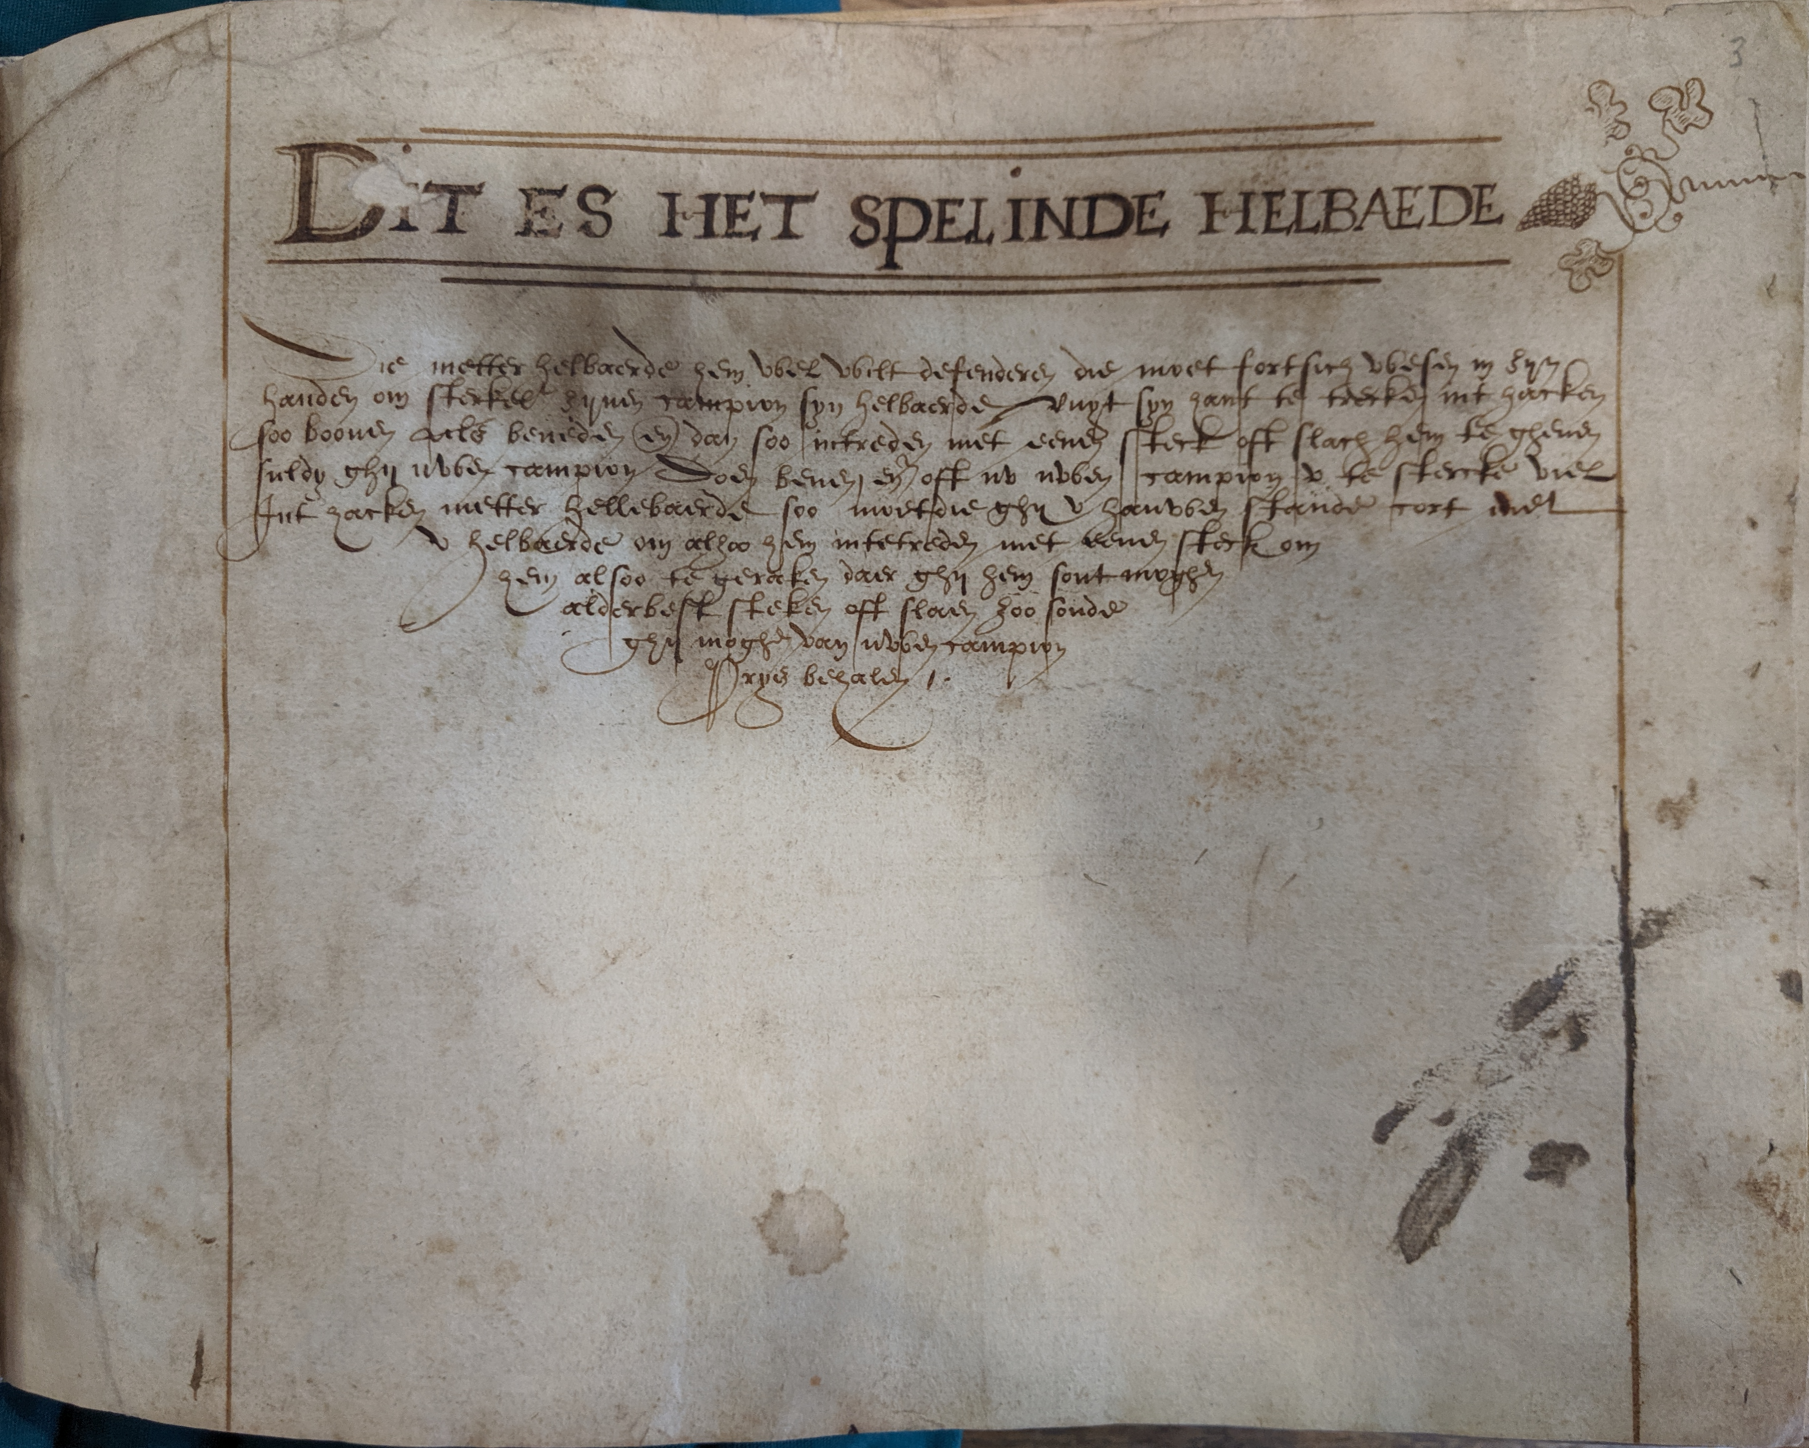 3
DIT ES HET SPEL INDE HELBAEDE
Die metter helbaerde hem wel wilt defenderen die moet fortsich wesen in zijn
handen om zijnen campion syn helbaerde vuyt syn hant te trecken int hacken
soo boouen als beneden en dan soo intreden met eenen steck oft slach hem te gheuen
suldy ghy uwen campion Doen beuen en oft nv uwen campion v te stercke viel
Int hacken metter hellebaerde soo moet die ghy v hauwen staende cort met
v helbaerde om alzoo hem intetreden met eenen steck om
hem alsoo te geraken daer ghij hem sout moghen
alderbest steken oft slaen zoo soude
ghij moghen van uwen campion
Prys behalen